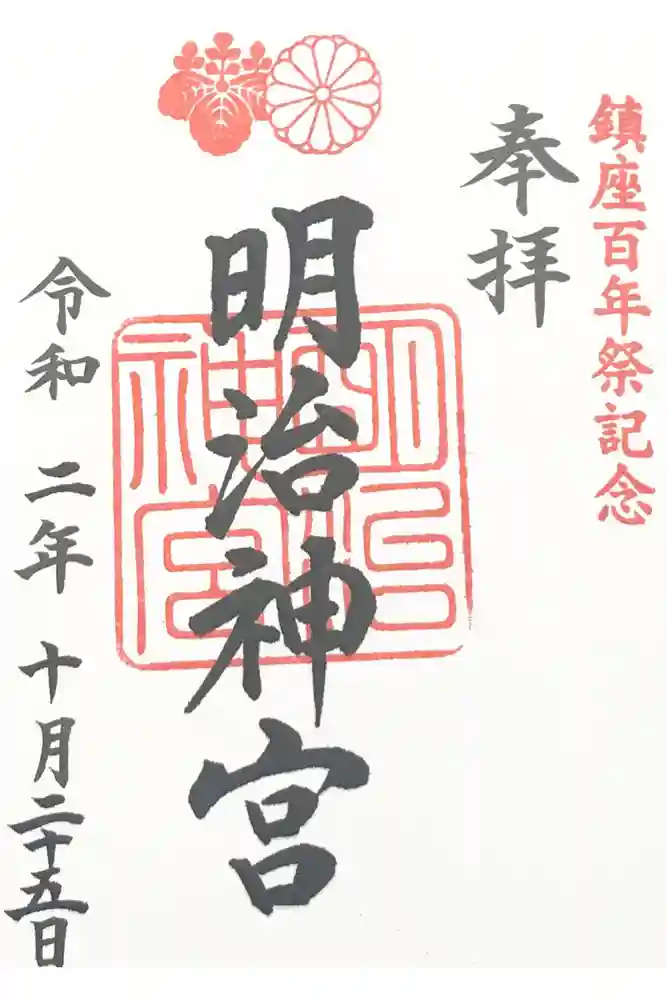 鎮座百年祭記念
奉拝
明治神宮
明治神宮
令和二年十月二十五日